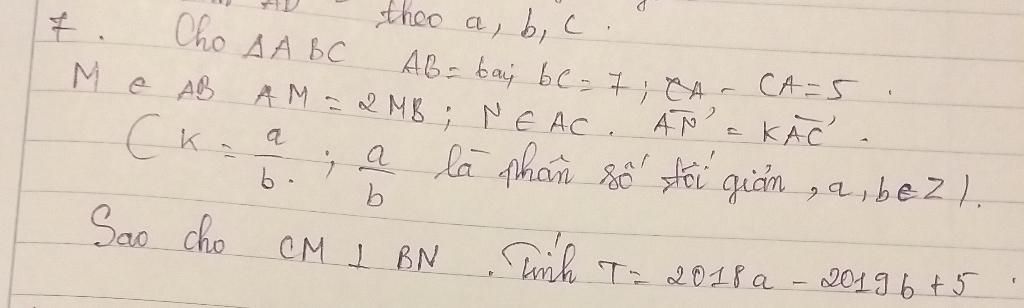 theo a, b, c.
7. Cho ΔABC AB = 6aij bC = 7 ; CA - CA = 5.
M e AB AM = 2MB ; N ∈ AC. AN→ = KAC→.
(K = a/b. ; a/b là phân số tối giản, a, b e Z).
Sao cho CM ⊥ BN. Tính T = 2018a - 2019b + 5.